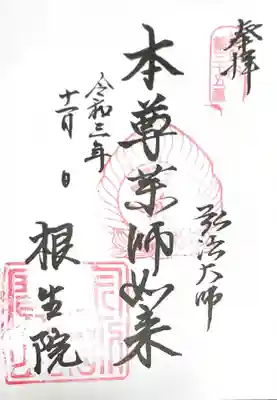 奉拝
弘法大師
本尊薬師如来
令和三年
十一月 日
根生院